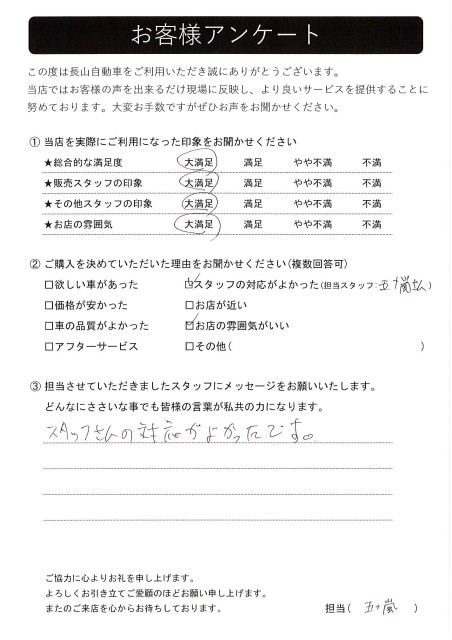 お客様アンケート
この度は長山自動車をご利用いただき誠にありがとうございます。
当店ではお客様の声を出来るだけ現場に反映し、より良いサービスを提供することに
努めております。大変お手数ですがぜひお声をお聞かせください。
① 当店を実際にご利用になった印象をお聞かせください
★総合的な満足度 大満足 満足 やや不満 不満
★販売スタッフの印象 大満足 満足 やや不満 不満
★その他スタッフの印象 大満足 満足 やや不満 不満
★お店の雰囲気 大満足 満足 やや不満 不満
② ご購入を決めていただいた理由をお聞かせください(複数回答可)
□欲しい車があった ☑スタッフの対応がよかった(担当スタッフ:五十嵐 )
□価格が安かった □お店が近い
□車の品質がよかった ☑お店の雰囲気がいい
□アフターサービス □その他( )
③ 担当させていただきましたスタッフにメッセージをお願いいたします。
どんなにささいな事でも皆様の言葉が私共の力になります。
スタッフさんの対応がよかったです。
ご協力に心よりお礼を申し上げます。
よろしくお引き立てご愛顧のほどお願い申し上げます。
またのご来店を心からお待ちしております。
担当( 五十嵐 )